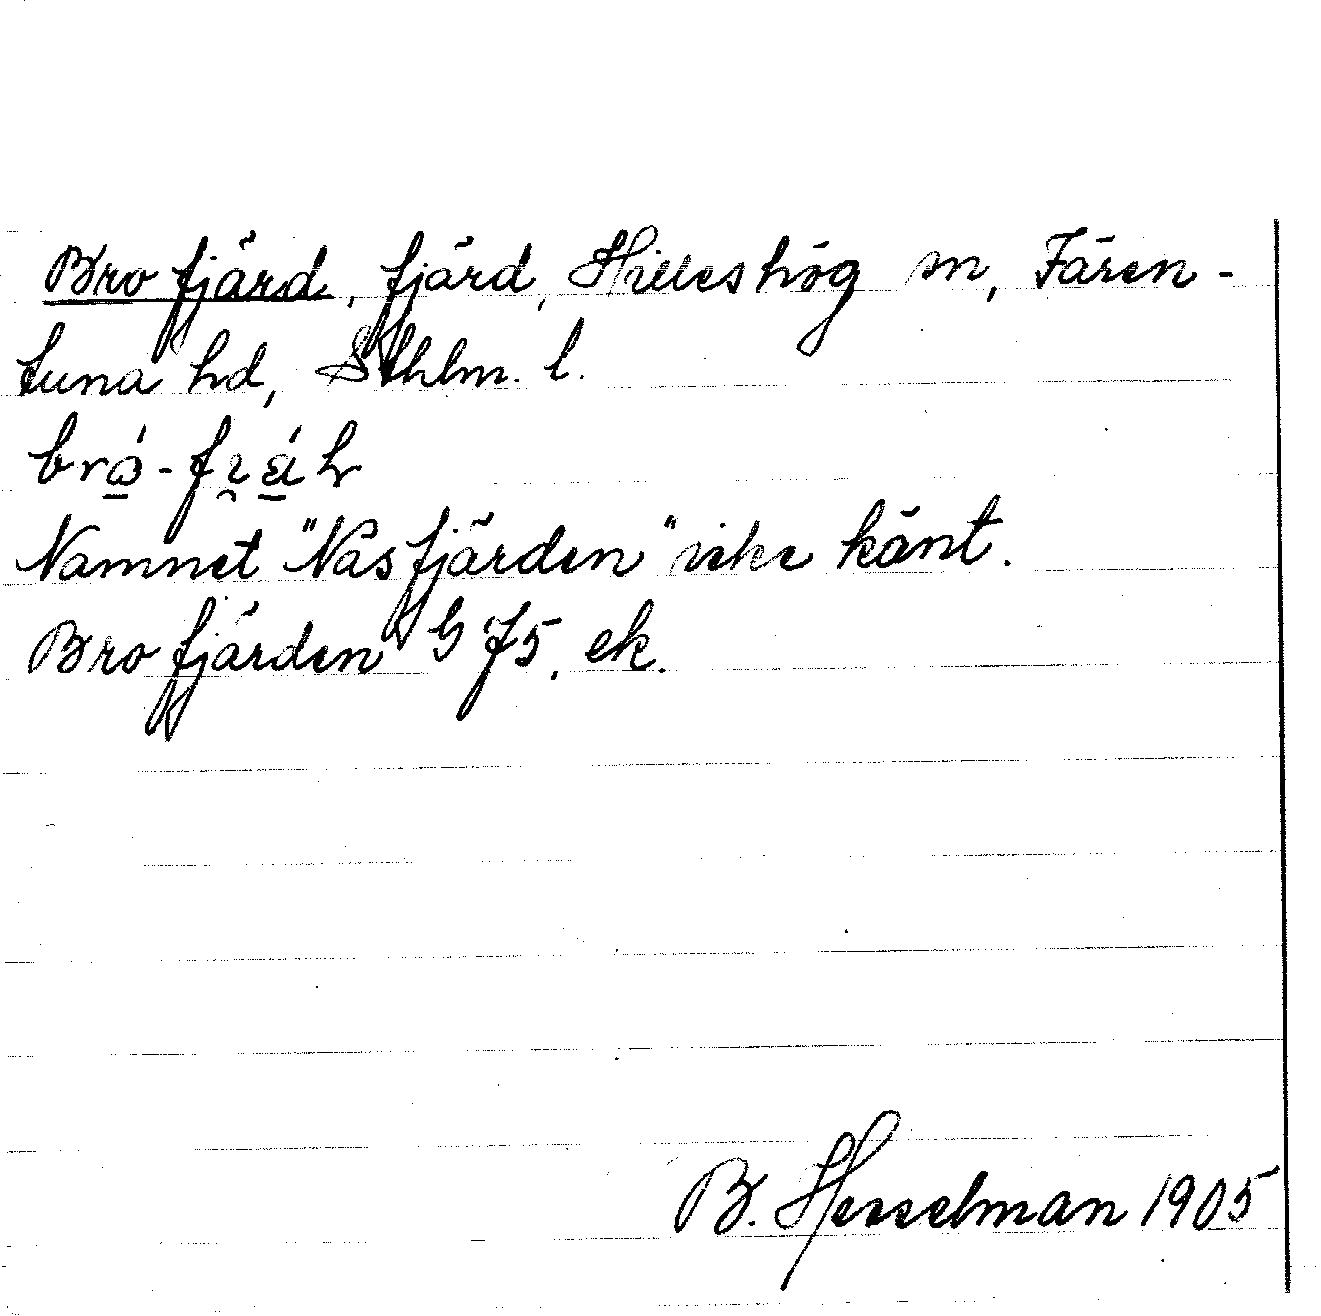 Brofjärd, fjärd, Hilleshög sn, Fären-
tuna hd, Sthlm. l.
Namnet "Näsfjärden" icke känt.
Brofjärden G 75. ek.
B. Hesselman 1905